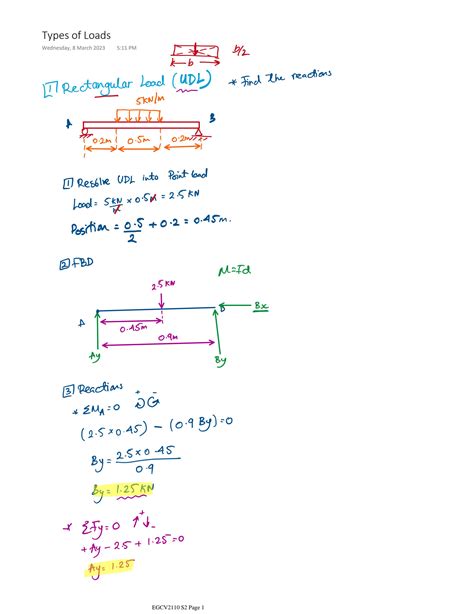 Types of Loads
Wednesday, 8 March 2023 5:11 PM
b b/2
1 Rectangular Load (UDL) * Find the reactions
5kN/m
A B
0.2m 0.5m 0.2m
1 Resolve UDL into Point load
Load = 5kN/M × 0.5M = 2.5 KN
Position = 0.5/2 + 0.2 = 0.45m.
2 FBD
M=Fd
2.5 KN
A B Bx
0.45m
0.9m
Ay By
3 Reactions
* ΣMA=0 + -
(2.5×0.45) - (0.9 By)=0
By = 2.5×0.45/0.9
By = 1.25 KN
* ΣFy=0 ↑+ ↓-
+Ay - 2.5 + 1.25 =0
Ay = 1.25
EGCV2110 S2 Page 1